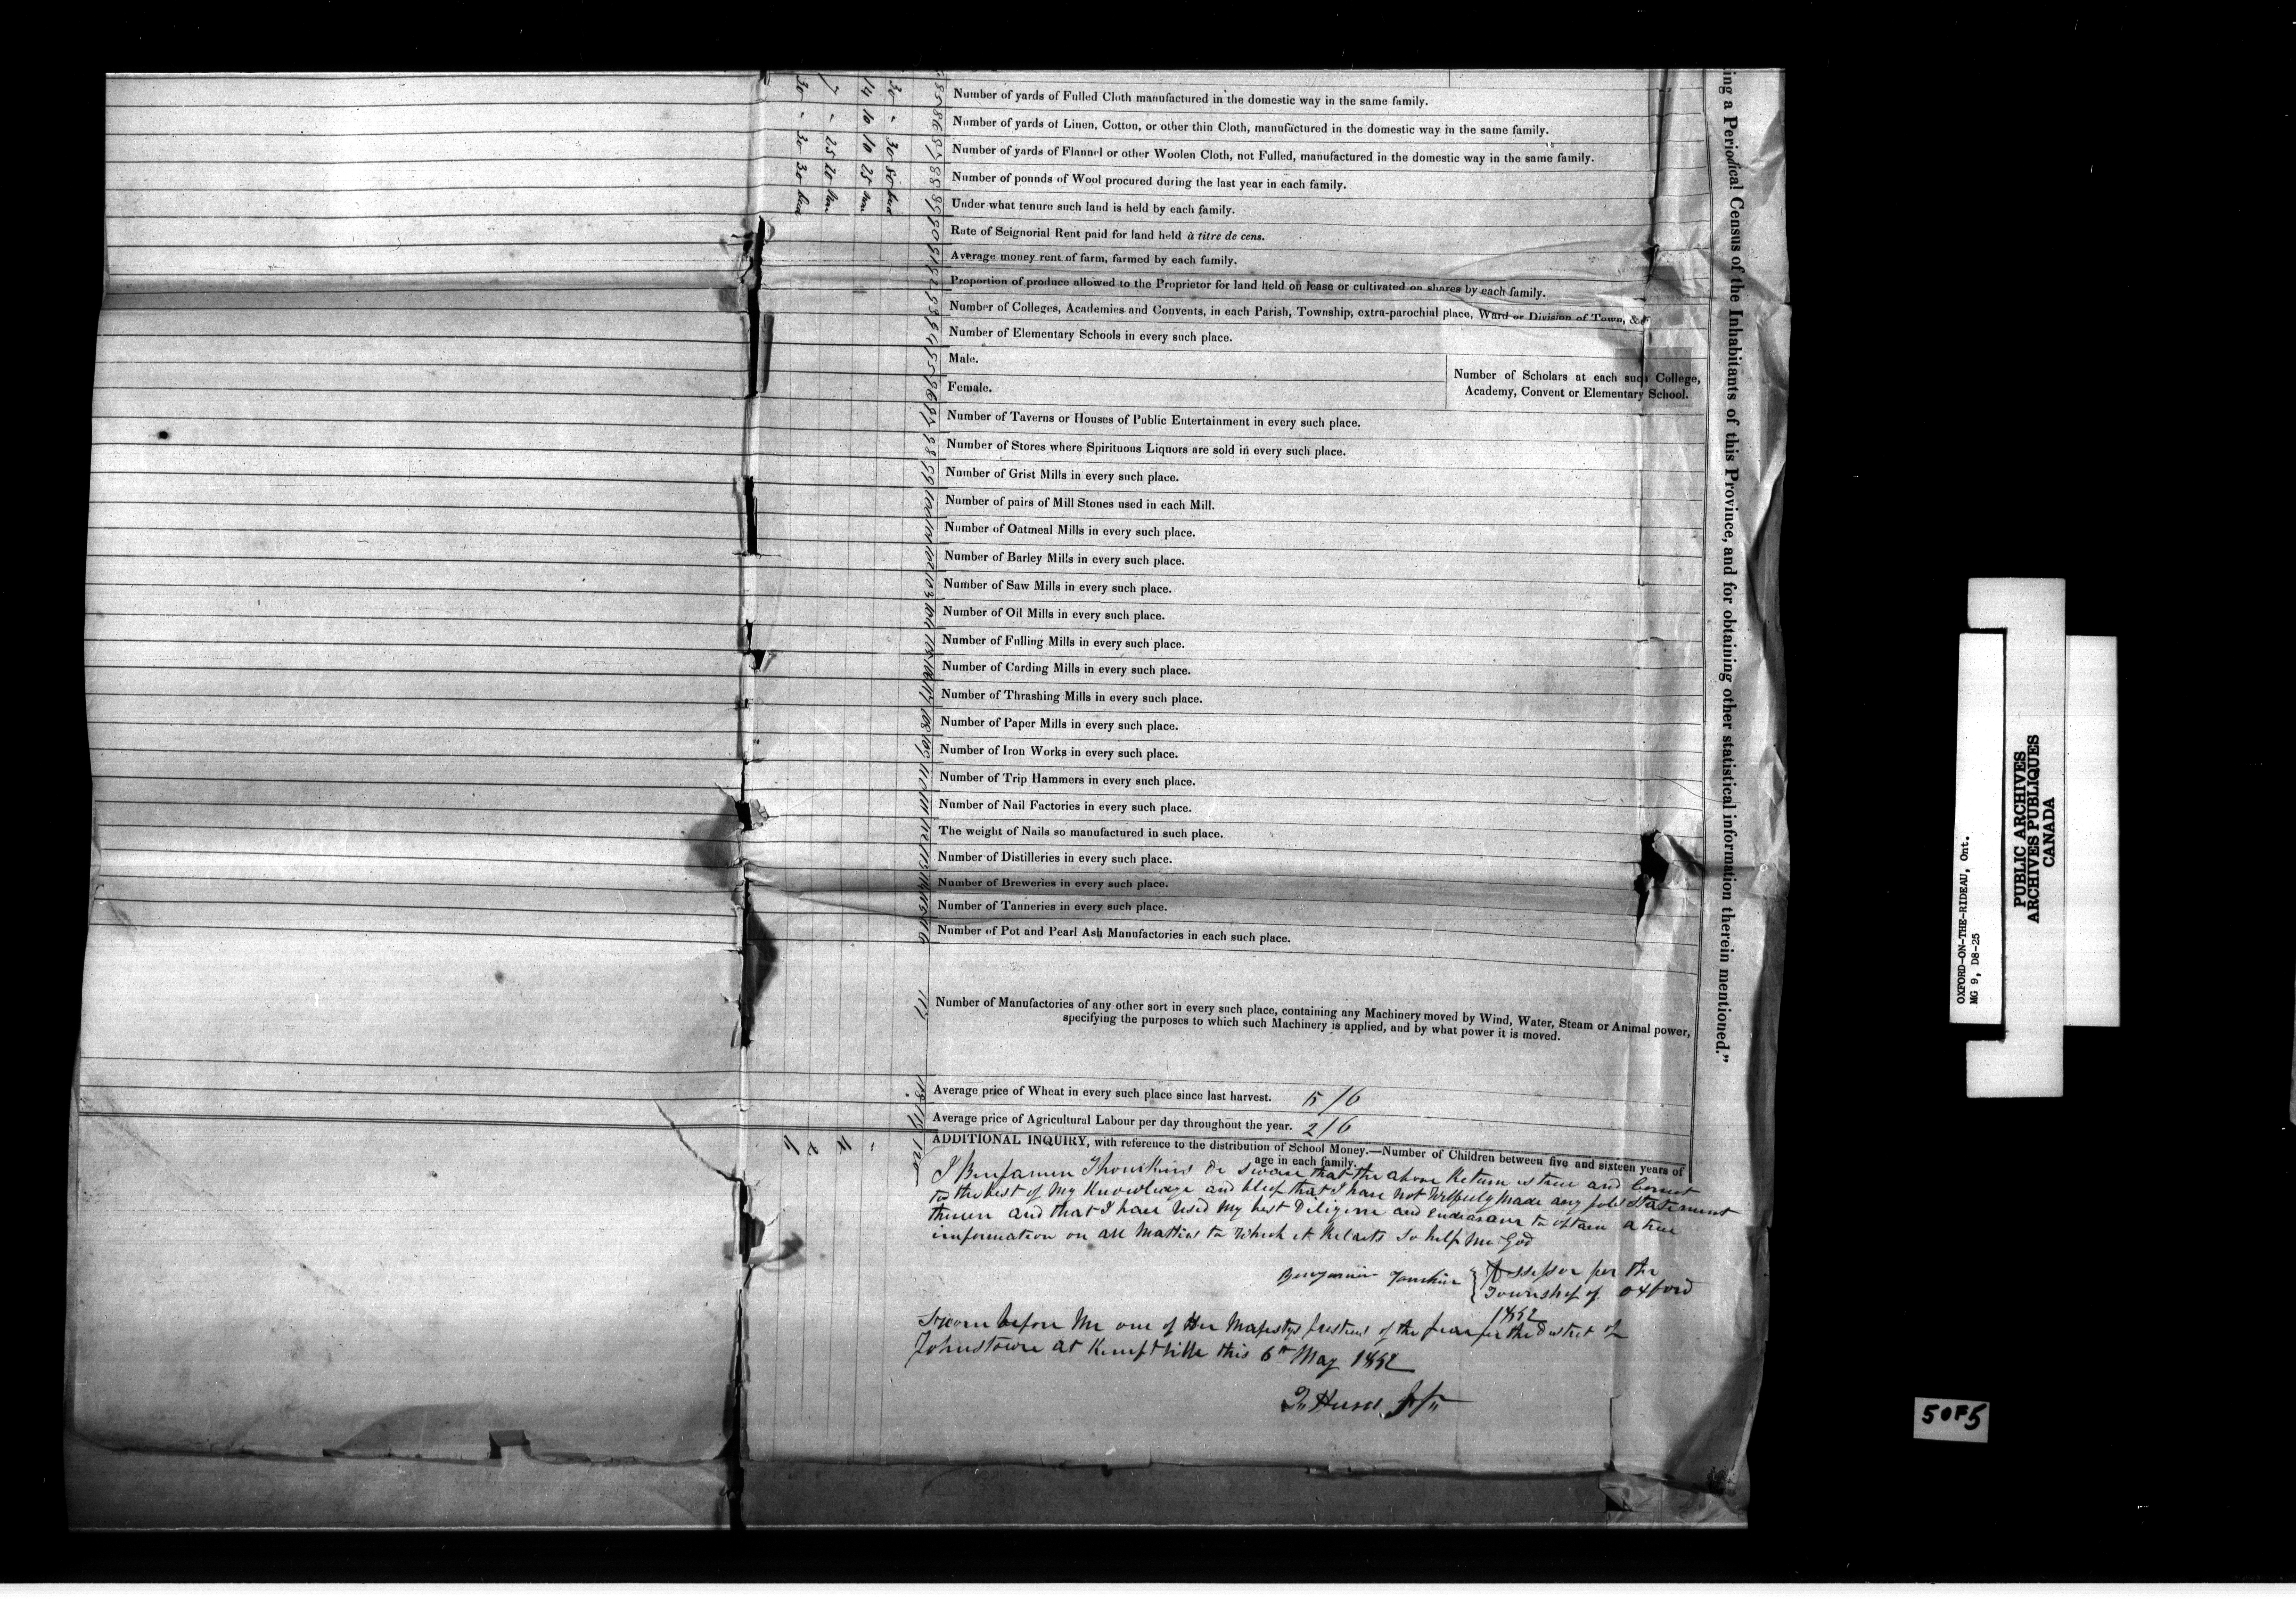 ing a Periodical Census of the Inhabitants of this Province, and for obtaining other statistical information therein mentioned."
85 Number of yards of Fulled Cloth manufactured in the domestic way in the same family.
86 Number of yards of Linen, Cotton, or other thin Cloth, manufactured in the domestic way in the same family.
87 Number of yards of Flannel or other Woolen Cloth, not Fulled, manufactured in the domestic way in the same family.
88 Number of pounds of Wool procured during the last year in each family.
89 Under what tenure such land is held by each family.
90 Rate of Seignorial Rent paid for land held à titre de cens.
91 Average money rent of farm, farmed by each family.
92 Proportion of produce allowed to the Proprietor for land held on lease or cultivated on shares by each family.
93 Number of Colleges, Academies and Convents, in each Parish, Township, extra-parochial place, Ward or Division of Town, &c.
94 Number of Elementary Schools in every such place.
95 Male.
96 Female.
Number of Scholars at each such College,
Academy, Convent or Elementary School.
97 Number of Taverns or Houses of Public Entertainment in every such place.
98 Number of Stores where Spirituous Liquors are sold in every such place.
99 Number of Grist Mills in every such place.
100 Number of pairs of Mill Stones used in each Mill.
101 Number of Oatmeal Mills in every such place.
102 Number of Barley Mills in every such place.
103 Number of Saw Mills in every such place.
104 Number of Oil Mills in every such place.
105 Number of Fulling Mills in every such place.
106 Number of Carding Mills in every such place.
107 Number of Thrashing Mills in every such place.
108 Number of Paper Mills in every such place.
109 Number of Iron Works in every such place.
110 Number of Trip Hammers in every such place.
111 Number of Nail Factories in every such place.
112 The weight of Nails so manufactured in such place.
113 Number of Distilleries in every such place.
114 Number of Breweries in every such place.
115 Number of Tanneries in every such place.
116 Number of Pot and Pearl Ash Manufactories in each such place.
117 Number of Manufactories of any other sort in every such place, containing any Machinery moved by Wind, Water, Steam or Animal power,
specifying the purposes to which such Machinery is applied, and by what power it is moved.
118 Average price of Wheat in every such place since last harvest. 5/6
119 Average price of Agricultural Labour per day throughout the year. 2/6
120 ADDITIONAL INQUIRY, with reference to the distribution of School Money.—Number of Children between five and sixteen years of
age in each family.
30 " 30 80
14 10 10 25
7 " 25 20
30 " 30 30
" 4 2
I Benjamin do swear that the above Return is true and Correct
to the best of My Knowledge and that I have Not Made any Statement
and that I have Used My best and Endeavour to obtain a true
information on all Matters to Which it Relates So help Me God
Benjamin { Assessor for the
Township of Oxford
1842
Sworn before Me one of Her Majestys of the peace for the District of
Johnstown at this 6th May 1842
PUBLIC ARCHIVES
ARCHIVES PUBLIQUES
CANADA
OXFORD-ON-THE-RIDEAU, Ont.
MG 9, D8-25
5 OF 5